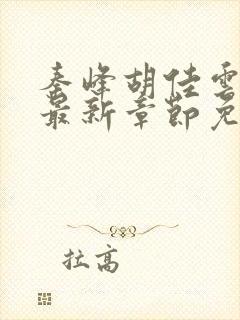 秦峰胡佳雲
最新章節免
拉高